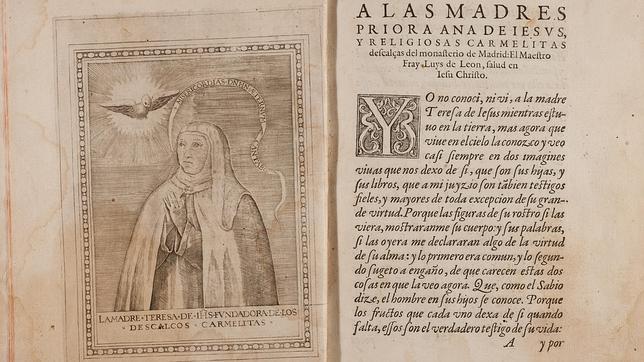 MISERICORDIAS DÑI IN ETERNVM
LA MADRE · TERESA · DE · IHS FVNDADORA DE LOS
· DESCALCOS · CARMELITAS ·
A LAS MADRES
PRIORA ANA DE IESVS,
Y RELIGIOSAS CARMELITAS
descalças del monasterio de Madrid: El Maestro
Fray Luys de Leon, salud en
Iesu Christo.
YO no conoci, ni vi, a la madre
Teresa de Iesus mientras estu-
uo en la tierra, mas agora que
viue en el cielo la conozco y veo
casi siempre en dos imagines
viuas que nos dexo de si, que son sus hijas, y
sus libros, que a mi juyzio son tãbien testigos
fieles, y mayores de toda excepcion de su gran-
de virtud. Porque las figuras de su rostro si las
viera, mostraranme su cuerpo: y sus palabras,
si las oyera me declararan algo de la virtud
de su alma: y lo primero era comun, y lo segun-
do sugeto a engaño, de que carecen estas dos
cosas en que la veo agora. Que, como el Sabio
dize, el hombre en sus hijos se conoce. Porque
los fructos que cada vno dexa de si quando
falta, essos son el verdadero testigo de su vida:
A y por